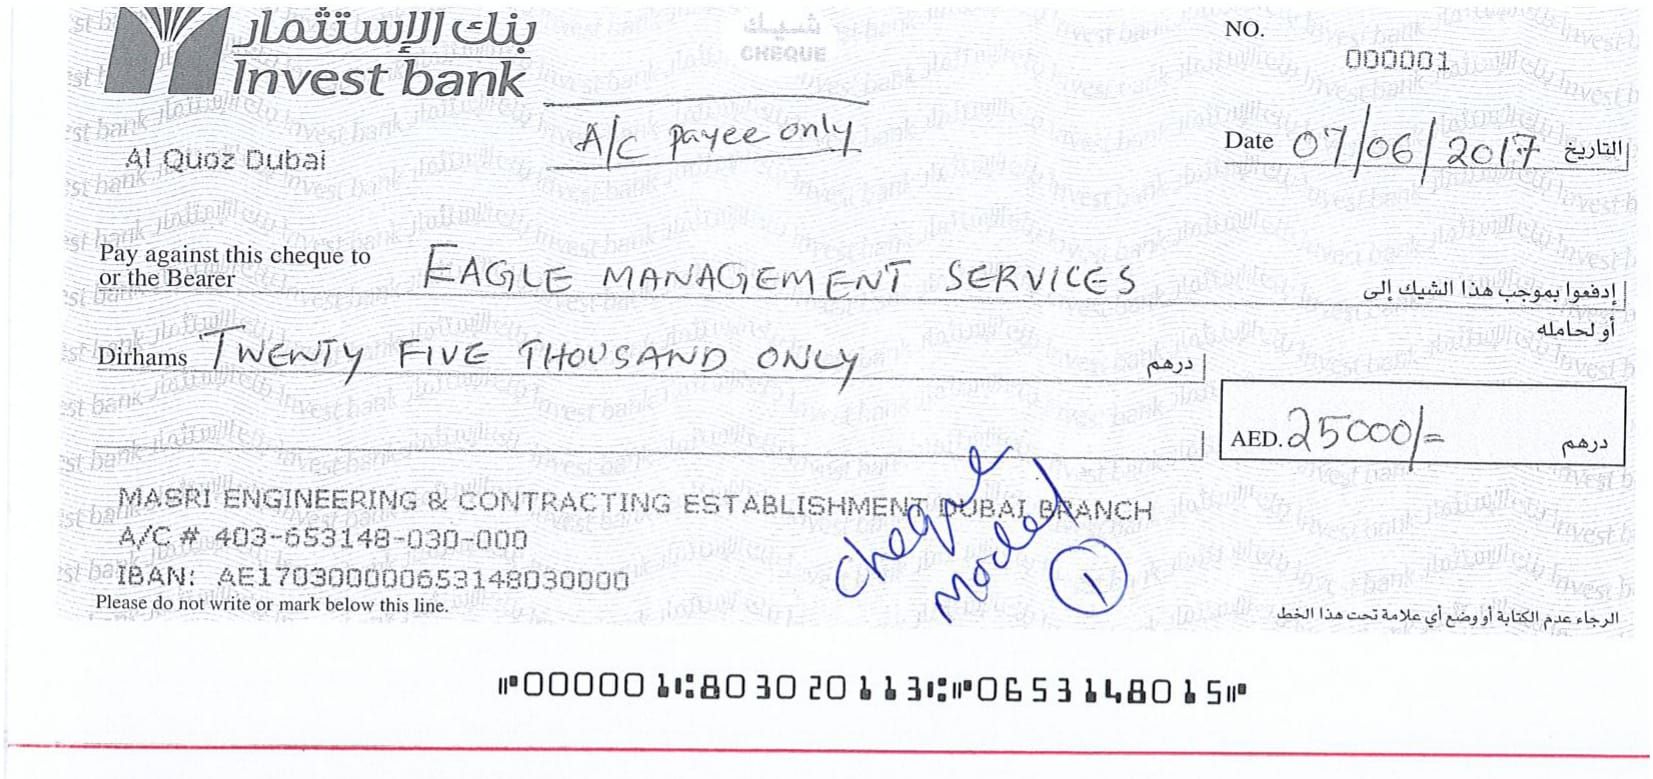 بنك الإستثمار
Invest bank
شيك
CHEQUE
NO.
000001
Al Quoz Dubai
A/C payee only
Date 07/06/2017 التاريخ
Pay against this cheque to
or the Bearer
EAGLE MANAGEMENT SERVICES
إدفعوا بموجب هذا الشيك إلى
أو لحامله
Dirhams TWENTY FIVE THOUSAND ONLY درهم
AED. 25000/= درهم
MASRI ENGINEERING & CONTRACTING ESTABLISHMENT DUBAI BRANCH
A/C # 403-653148-030-000
IBAN: AE170300000653148030000
Cheque
Model
1
Please do not write or mark below this line.
الرجاء عدم الكتابة أو وضع أي علامة تحت هذا الخط
⑈000001⑆803020113⑆⑈0653148015⑈